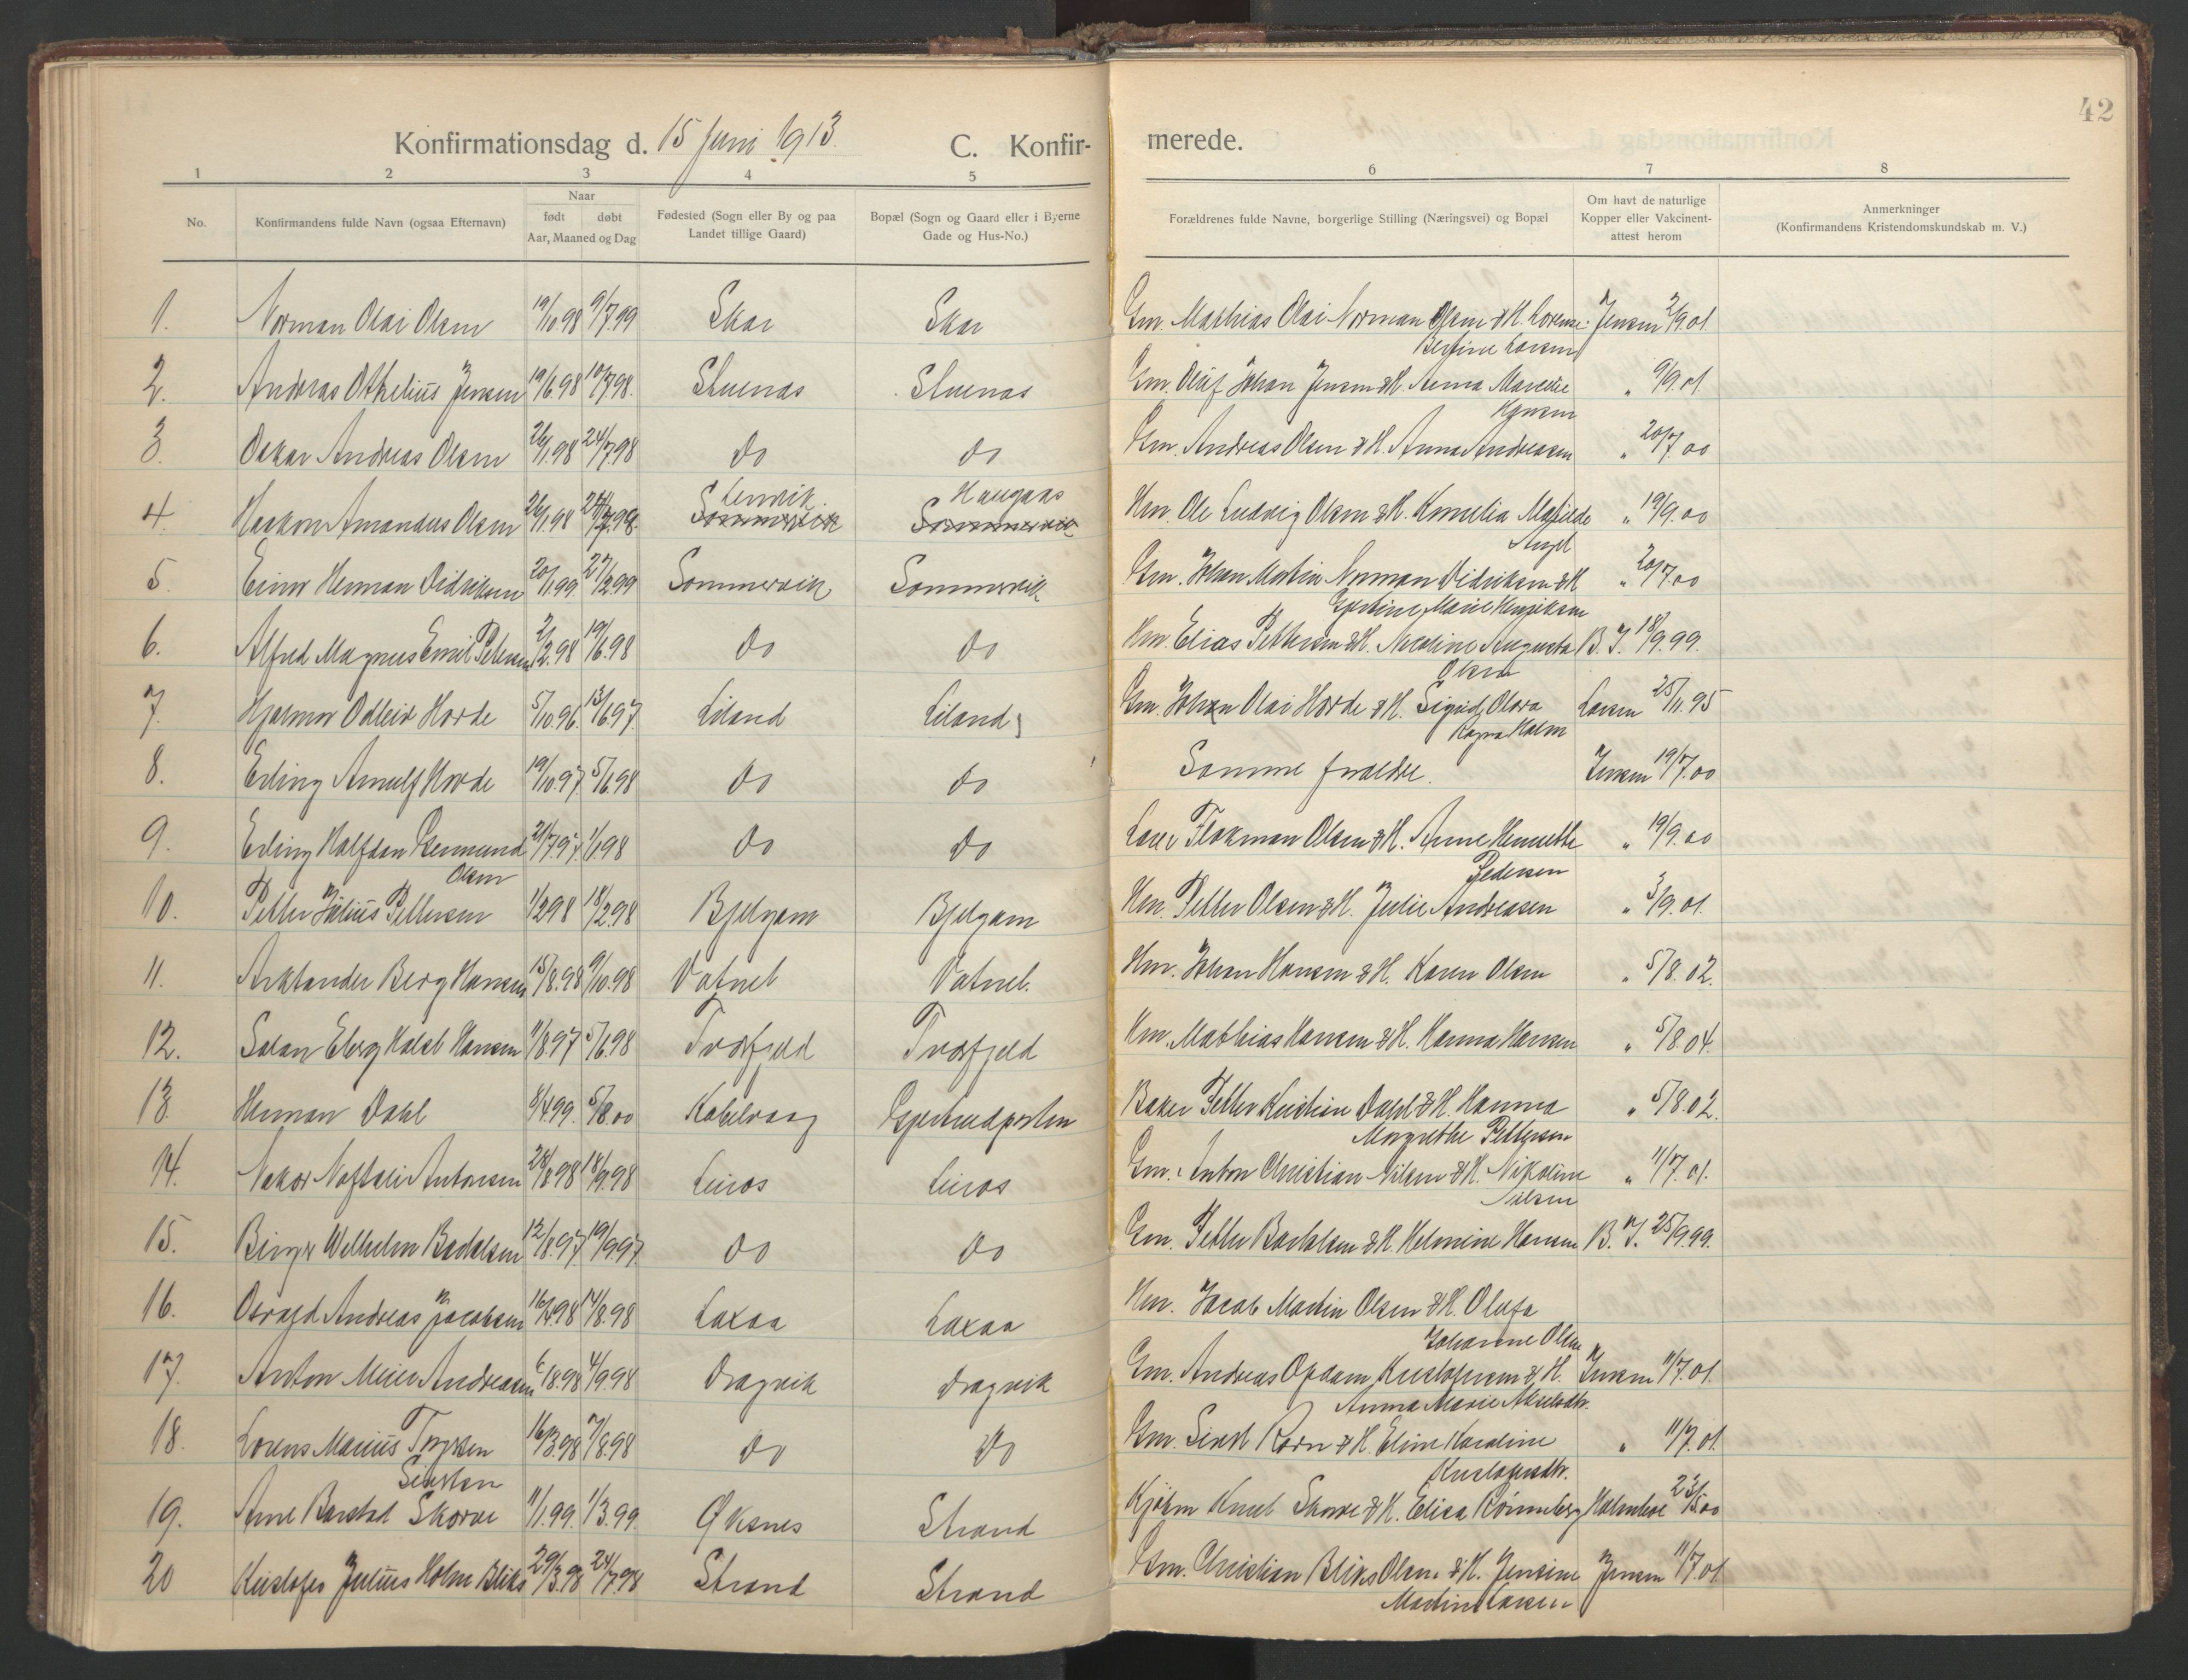 42
Konfirmationsdag d. 15 Juni 1913.
C. Konfir-
merede.
1 2 3 4 5 6 7 8
No.
Konfirmandens fulde Navn (ogsaa Efternavn)
Naar
født
døbt
Aar, Maaned og Dag
Fødested (Sogn eller By og paa
Landet tillige Gaard)
Bopæl (Sogn og Gaard eller i Byerne
Gade og Hus-No.)
Forældrenes fulde Navne, borgerlige Stilling (Næringsvei) og Bopæl
Om havt de naturlige
Kopper eller Vakcinent-
attest herom
Anmerkninger
(Konfirmandens Kristendomskundskab m. V.)
1. Norman Olai Olsen 19/10 98 9/7.99 Skar Skar Gm. Mathias Olai Norman Olsen & H. Lorense Jensen 2/9.01.
Bergine Larsen
2. Andreas Othelius Jensen 19/6.98 10/7.98. Stuenas Stuenas Gm. Oluf Johan Jensen & H. Anna " 9/9.01.
3. Oskar Andreas Olsen 26/1.98 24/7.98 do do Gm. Andreas Olsen & H. Anna Andreasen " 20/7.00
Lenvik Haugaas
4. Haakon Amandus Olsen 26/1.98 Sommervik Sommervik Hm. Ole Ludvig Olsen & H. Kornelia " 19/9.00
5. Einar Herman Didriksen 20/1.99. 27/2.99 Sommervik Sommervik Gm. Johan Martin Norman Didriksen & H. " 20/7.00
6. Alfred Magnus Emil Petersen 2/2.98 19/6.98 do do Hm. Elias Pettersen & H. Nicoline Augusta B. J. 18/9.99.
Olsen
7. Hjalmar Odleiv Horde 5/10 96. 13/6.97. Liland Liland Gm. Johan Olai Horde & H. Sigrid Olava Larsen 25/11.95
Ragna Holm
8. Erling Arnulf Horde 19/10.97 5/6.98 do do Samme forældre. Jensen 19/7.00
9. Erling Halfdan Germund 21/7.97. 1/1.98 do do Flakman Olsen & H. Anne Henriette " 19/9.00
Olsen Pedersen
10. Petter Julius Pettersen 1/2 98 18/2.98 Bjelgam Bjelgam Hm. Petter Olsen & H. Julie Andreasen " 3/9.01.
11. Arktander Berg Hansen 15/8.98 9/10.98 Vatnet Vatnet. Hm. Johan Hansen & H. Karen Olsen " 5/8.02.
12. Eberg Hansen 11/8 97 5/6.98 Tverfjeld Tverfjeld Hm. Mathias Hansen & H. Hanna Hansen " 5/8.04.
13. Herman Dahl 8/4 99. 5/8.00 Kabelvaag Baker Petter Kristian Dahl & H. Hanna " 5/8.02.
Margrethe Pettersen
14. Nakor Naftali Antonsen 28/8 98 18/9.98 Leiros Leiros Gm. Anton Christian Nilsen & H. Nikoline " 11/7.01.
Nilsen
15. Birger Wilhelm Bartolsen 12/8.97. 19/9.97. do do Gm. Petter Bartolsen & H. Helmine Hansen B. J. 25/9.99.
16. Osvald Andreas Jacobsen 16/4.98 14/8.98 Laxaa Laxaa Hm. Jacob Martin Olsen & H. Olufa
Johanne Olsen
17. Anton Meier Andreasen 6/8.98 4/9.98 Dragvik Dragvik Gm. Andreas Opdam Kristofersen & H. Jensen 11/7.01.
Anna Marie
18. Lorens Marius 16/3.98 7/8.98 do do Gm. Korn & H. Eline Karoline " 11/7.01
Kristofersdtr.
19. Arne Barstad Skorve 11/1.99. 1/3.99. Øksnes Strand Kjøbm Knut Skorve & H. Elisa Rönneberg Holmboe 23/5.00
20 Kristofer Julius Holm Bliks 29/3.98 24/7.98 Strand Strand Gm. Christian Bliks Olsen & H. Jensine Jensen 11/7.01
Martine Larsen